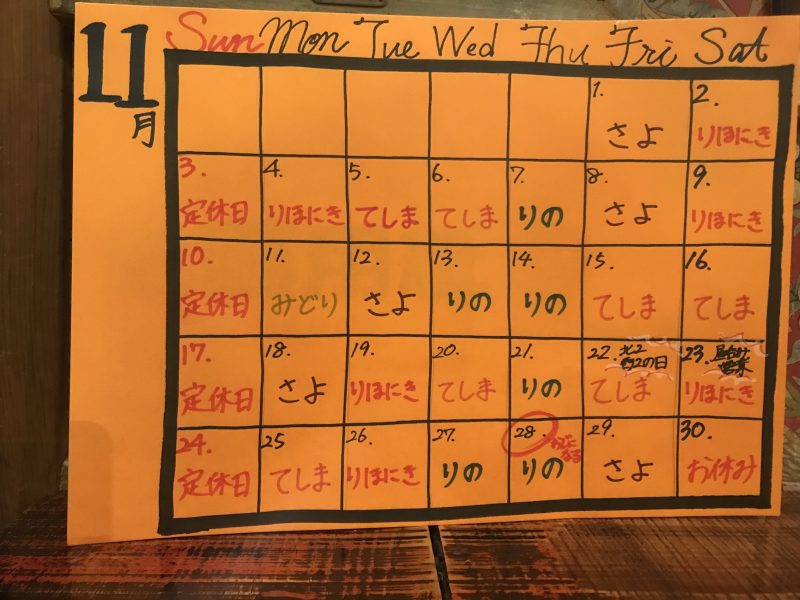 11
月
Sun Mon Tue Wed Thu Fri Sat
1. 2.
さよ りほにき
3. 4. 5. 6. 7. 8. 9.
定休日 りほにき てしま てしま りの さよ りほにき
10. 11. 12. 13. 14. 15. 16.
定休日 みどり さよ りの りの てしま てしま
17. 18. 19. 20. 21. 22. 23.
の日
定休日 さよ りほにき てしま りの てしま りほにき
24. 25 26. 27. 28. 29. 30.
定休日 てしま りほにき りの りの さよ お休み